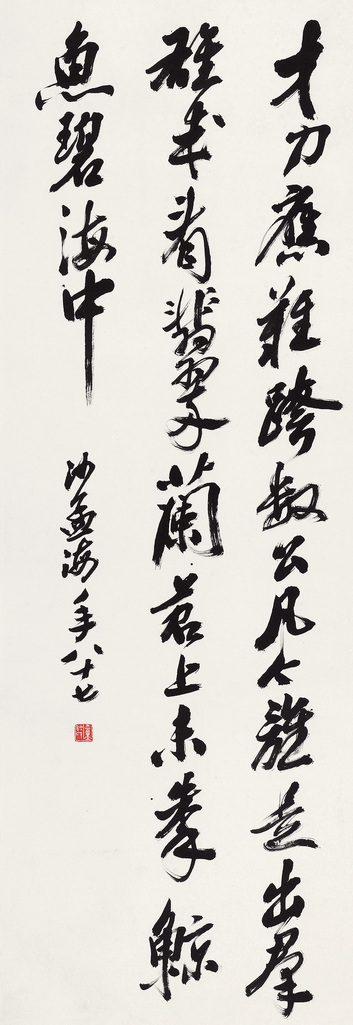 才力應難跨數公凡今誰是出羣
雄或看翡翠蘭苕上未掣鯨
魚碧海中
沙孟海年八十七